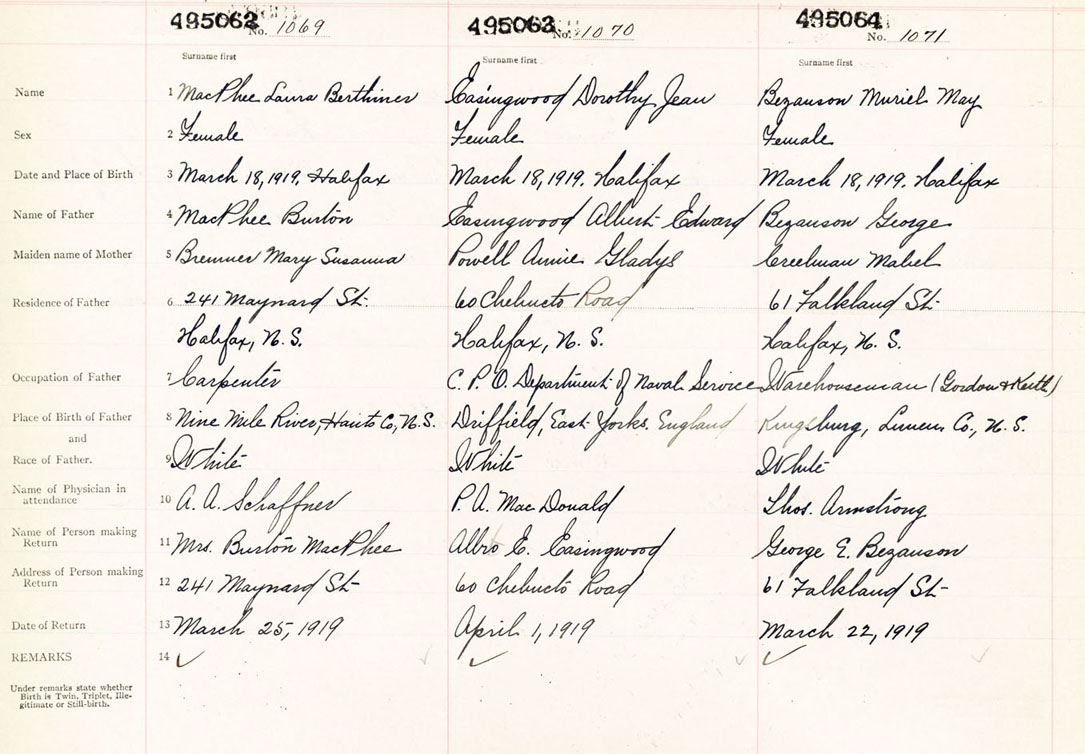 495062 495063 495064
No. 1069 No. 1070 No. 1071
Surname first Surname first Surname first
Name 1 MacPhee Laura Berthiner Easingwood Dorothy Jean Bezanson Muriel May
Sex 2 Female Female Female
Date and Place of Birth 3 March 18, 1919. Halifax March 18, 1919. Halifax March 18, 1919. Halifax
Name of Father 4 MacPhee Burton Easingwood Albert Edward Bezanson George
Maiden name of Mother 5 Bremner Mary Susanna Powell Annie Gladys Creelman Mabel
Residence of Father 6 241 Maynard St. 60 Chebucto Road 61 Falkland St.
Halifax, N. S. Halifax, N. S. Halifax, N. S.
Occupation of Father 7 Carpenter C. P. O. Department of Naval Service Warehouseman (Gordon & Keith)
Place of Birth of Father 8 Nine Mile River, Hants Co, N.S. Driffield, East Yorks. England Kingsburg, Lunen Co., N. S.
and
Race of Father. 9 White White White
Name of Physician in
attendance 10 A. A. Schaffner P. A. MacDonald Thos. Armstrong
Name of Person making
Return 11 Mrs. Burton MacPhee Albro E. Easingwood George E. Bezanson
Address of Person making
Return 12 241 Maynard St 60 Chebucto Road 61 Falkland St
Date of Return 13 March 25, 1919 April 1, 1919 March 22, 1919
REMARKS 14 ✓ ✓ ✓
Under remarks state whether
Birth is Twin, Triplet, Ille-
gitimate or Still-birth.